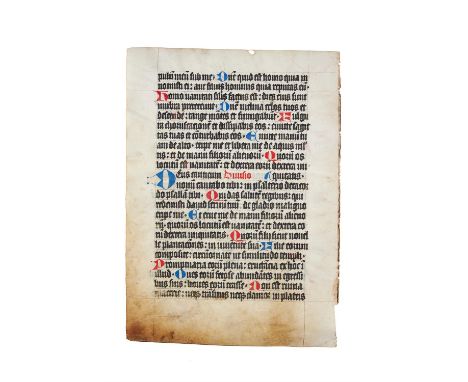 pulum meū sub me. Dn̄e quid est homo quia in
notuisti ei: aut filius hominis quia reputas eū.
Homo vanitati silis factus est: dies eius sicut
umbra pretereunt. Dn̄e inclina celos tuos et
descende: tange mōtes et fumigabūt. Fulgura
choruscationē et dissipabis eos: emitte sagit
tas tuas et cōturbabis eos. Emitte manū tu
am de alto: eripe me et libera me de aquis mul
tis: et de manu filiorū alienorū. Quorū os
locutū est vanitatē: et dextera eorū dextera ini
Deus canticum Divisio quitatis.
novum cantabo tibi: in psalterio decacor
do psallam tibi. Qui das salutē regibus: qui
redemisti david servū tuū de gladio maligno
eripe me. Et erue me de manu filiorū alieno
rū: quorū os locutū est vanitatē: et dextera eorū
dextera iniquitatis. Quorū filii sicut novel
le plantaciones: in iuventute sua. Filie eorum
composite: circūornate ut similitudo templi.
Promptuaria eorū plena: eructācia ex hoc i
illud. Oves eorū fetose abundātes in egressi
bus suis: boves eorū crasse. Non est ruina
macerie: neq; trāsitus neq; clamor in plateis